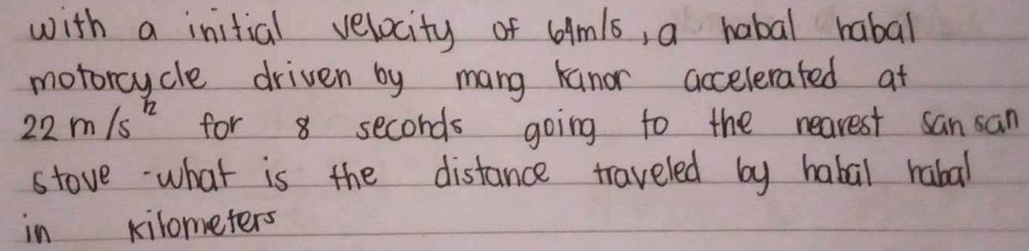 with a initial velocity of 69m/s, a habal habal
motorcycle driven by mang kanor accelerated at
22 m/s² for 8 seconds going to the nearest san san
stove. what is the distance traveled by habal habal
in kilometers